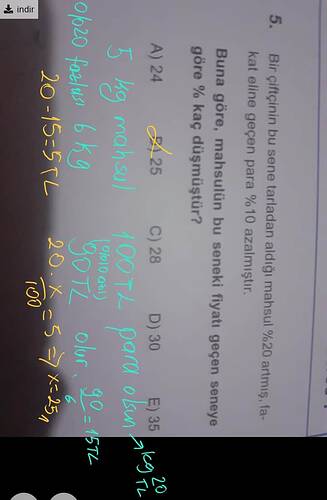 indir
5. Bir çiftçinin bu sene tarladan aldığı mahsul %20 artmış, fa-
kat eline geçen para %10 azalmıştır.
Buna göre, mahsulün bu seneki fiyatı geçen seneye
göre % kaç düşmüştür?
A) 24 B) 25 C) 28 D) 30 E) 35
5 kg mahsul 100TL para olsun → kg 20 TL
%20 fazlası 6 kg 90TL olur. 90/6 = 15TL
20-15=5TL 20 . x/100 = 5 ⇒ x=25